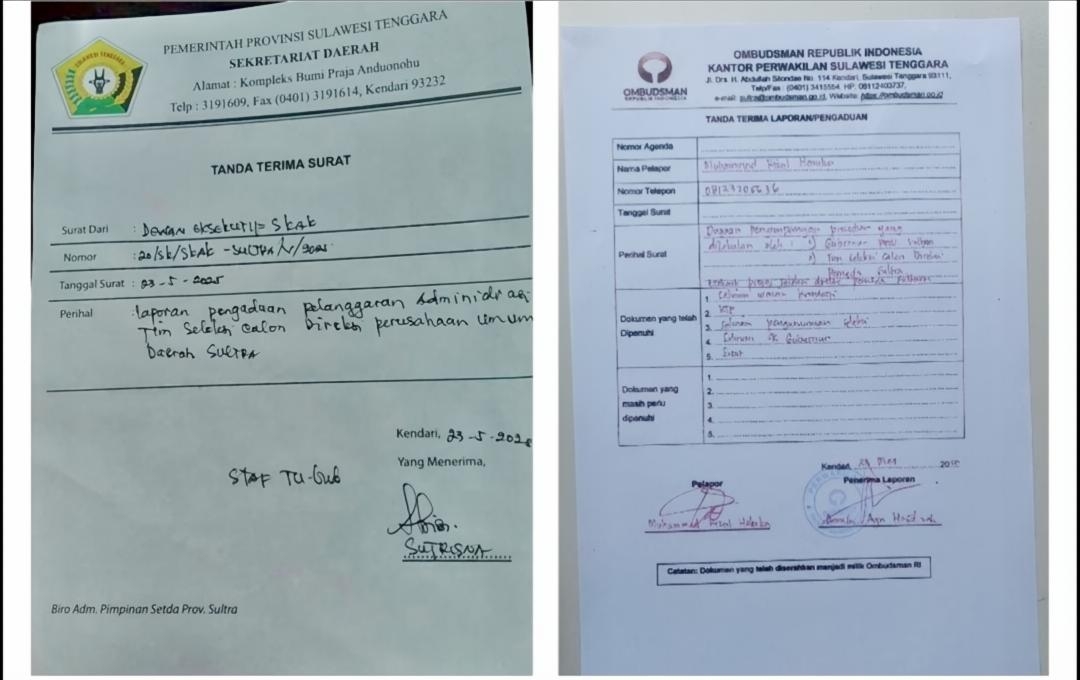 PEMERINTAH PROVINSI SULAWESI TENGGARA
SEKRETARIAT DAERAH
Alamat : Kompleks Bumi Praja Anduonohu
Telp : 3191609, Fax (0401) 3191614, Kendari 93232
TANDA TERIMA SURAT
Surat Dari : DEWAN EKSEKUTIF SKAK
Nomor : 20/SK/SKAK-SULTRA/V/2025
Tanggal Surat : 23-5-2025
Perihal : laporan pengaduan pelanggaran Administrasi
Tim Seleksi Calon Direksi perusahaan umum
Daerah SULTRA
Kendari, 23-5-2025
Yang Menerima,
STAF TU-Gub
SUTRISNA
Biro Adm. Pimpinan Setda Prov. Sultra
OMBUDSMAN
REPUBLIK INDONESIA
OMBUDSMAN REPUBLIK INDONESIA
KANTOR PERWAKILAN SULAWESI TENGGARA
Jl. Drs. H. Abdullah Silondae No. 114 Kendari, Sulawesi Tenggara 93111,
Telp/Fax : (0401) 3415554, HP: 08112403737,
e-mail: sultra@ombudsman.go.id, Website: https://ombudsman.go.id
TANDA TERIMA LAPORAN/PENGADUAN
Nomor Agenda
Nama Pelapor Muhammad
Nomor Telepon
Tanggal Surat
Perihal Surat Dugaan Penyimpangan prosedur yang
dilakukan oleh : 1) Gubernur Prov Sultra
2) Tim Seleksi Calon Direksi
Perumda Sultra
Dokumen yang telah Dipenuhi
1.
2. KTP
3. Salinan pengumuman seleksi
4. Salinan SK Gubernur
5. Surat
Dokumen yang masih perlu dipenuhi
1.
2.
3.
4.
5.
Kendari, 2025
Pelapor
Penerima Laporan
Muhammad
Catatan: Dokumen yang telah diserahkan menjadi milik Ombudsman RI